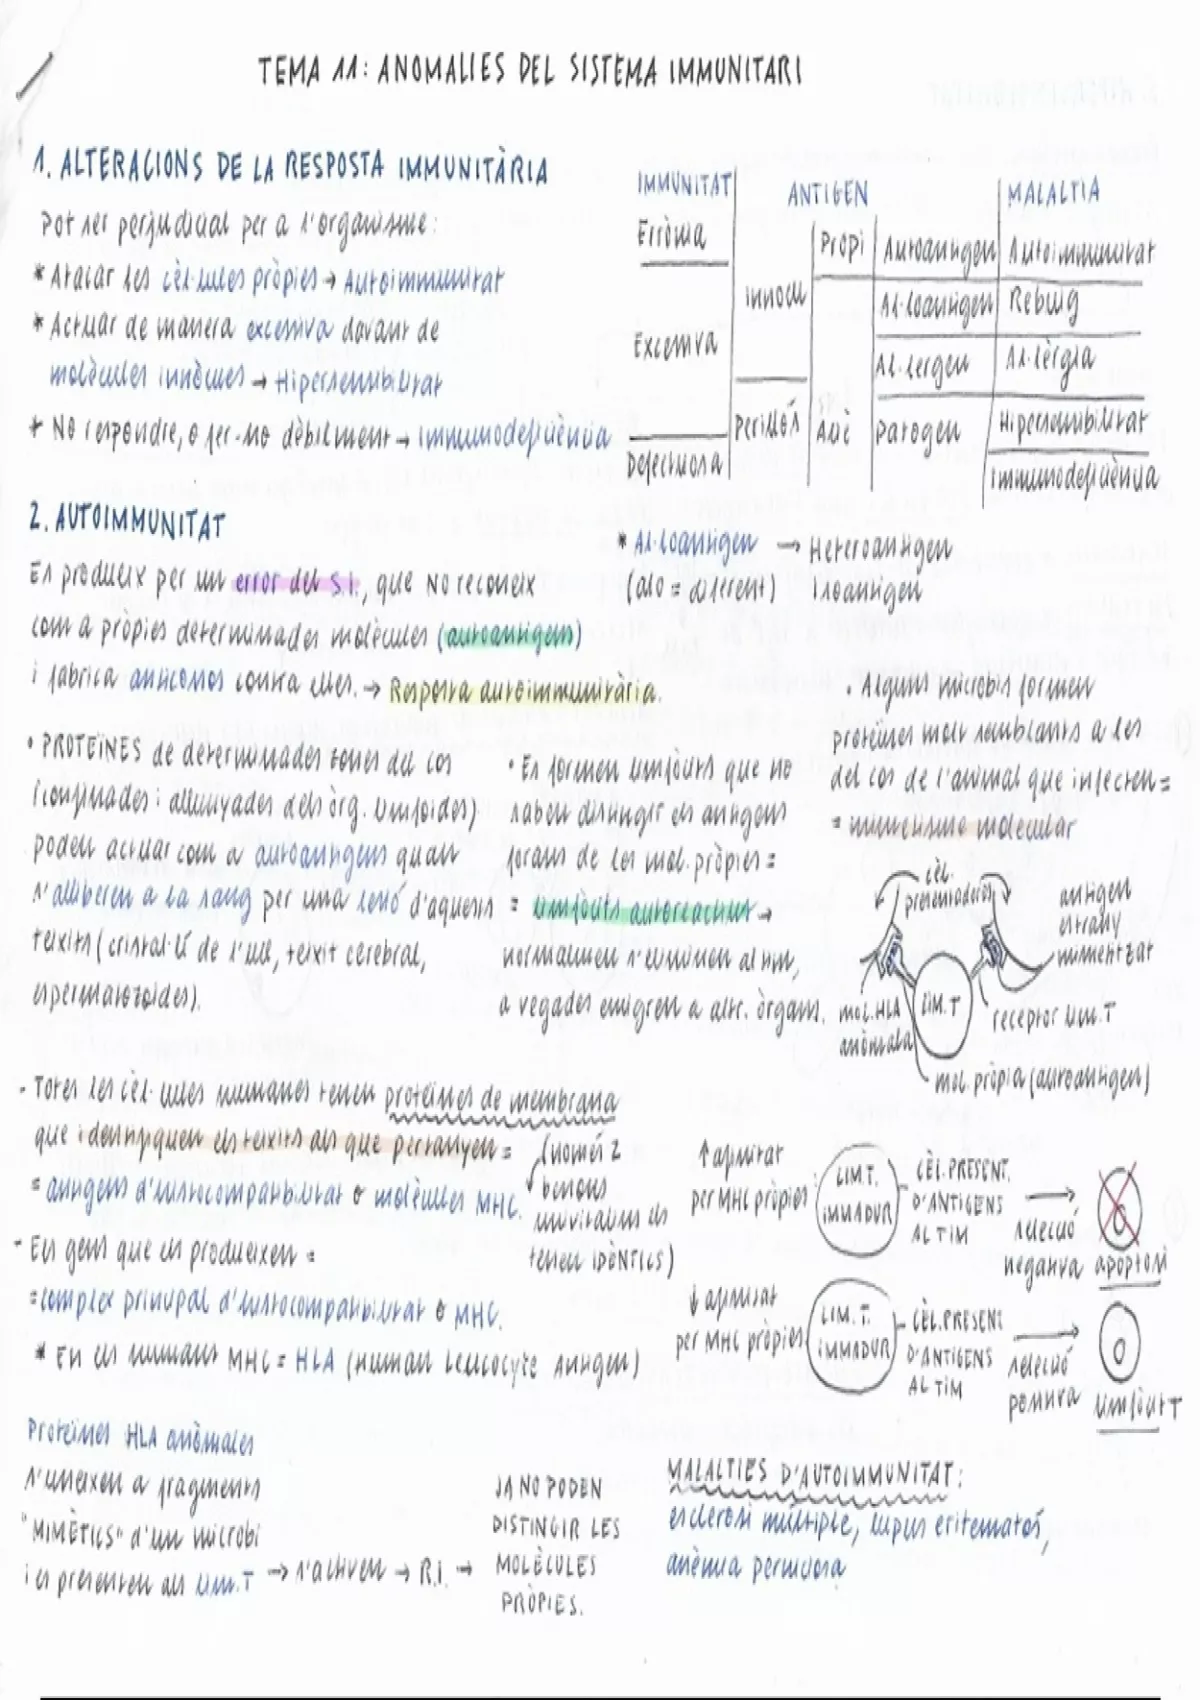 TEMA 11: ANOMALIES DEL SISTEMA IMMUNITARI
1. ALTERACIONS DE LA RESPOSTA IMMUNITÀRIA
Pot ser perjudicial per a l'organisme:
* Atacar les cèl·lules pròpies → Autoimmunitat
* Actuar de manera excessiva davant de
molècules innòcues → Hipersensibilitat
* No respondre, o fer-ho dèbilment → Immunodeficiència
IMMUNITAT ANTIGEN MALALTIA
Errònia Propi Autoantigen Autoimmunitat
Innocu Al·loantigen Rebuig
Excessiva Al·lergen Al·lèrgia
Perillós Aliè Patogen Hipersensibilitat
Defectuosa Immunodeficiència
* Al·loantigen → Heteroantigen
(alo = diferent) Isoantigen
2. AUTOIMMUNITAT
Es produeix per un error del S.I., que NO reconeix
com a pròpies determinades molècules (autoantigens)
i fabrica anticossos contra elles. → Resposta autoimmunitària.
• PROTEÏNES de determinades zones del cos
(confinades i allunyades dels òrg. limfoides)
poden actuar com a autoantigens quan
s'alliberen a la sang per una lesió d'aquests
teixits (cristal·lí de l'ull, teixit cerebral,
espermatozoides).
• Es formen limfòcits que no
saben distingir els antígens
forans de les mol. pròpies =
= limfòcits autoreactius →
normalment s'eliminen al tim,
a vegades emigren a altr. òrgans.
• Alguns microbis formen
proteïnes molt semblants a les
del cos de l'animal que infecten =
= mimetisme molecular
cèl.
presentadora
antigen
estrany
mimetitzat
mol. HLA
anòmala
LIM.T
receptor lim.T
mol. pròpia (autoantigen)
- Totes les cèl·lules humanes tenen proteïnes de membrana
que identifiquen els teixits als que pertanyen =
= antígens d'histocompatibilitat o molècules MHC.
(només 2
bessons
univitelins els
tenen IDÈNTICS)
- Els gens que els produeixen =
= complex principal d'histocompatibilitat o MHC.
* En els humans MHC = HLA (Human Leucocyte Antigen)
↑ afinitat
per MHC pròpies
LIM.T.
IMMADUR
CÈL.PRESENT.
D'ANTIGENS
AL TIM
→
selecció
negativa
apoptosi
↓ afinitat
per MHC pròpies
LIM.T.
IMMADUR
CÈL.PRESENT
D'ANTIGENS
AL TIM
→
selecció
positiva
limfòcit T
Proteïnes HLA anòmales
s'uneixen a fragments
"MIMÈTICS" d'un microbi
i es presenten als lim.T → s'activen → R.I. →
JA NO PODEN
DISTINGIR LES
MOLÈCULES
PRÒPIES.
MALALTIES D'AUTOIMMUNITAT:
esclerosi múltiple, lupus eritematós,
anèmia perniciosa